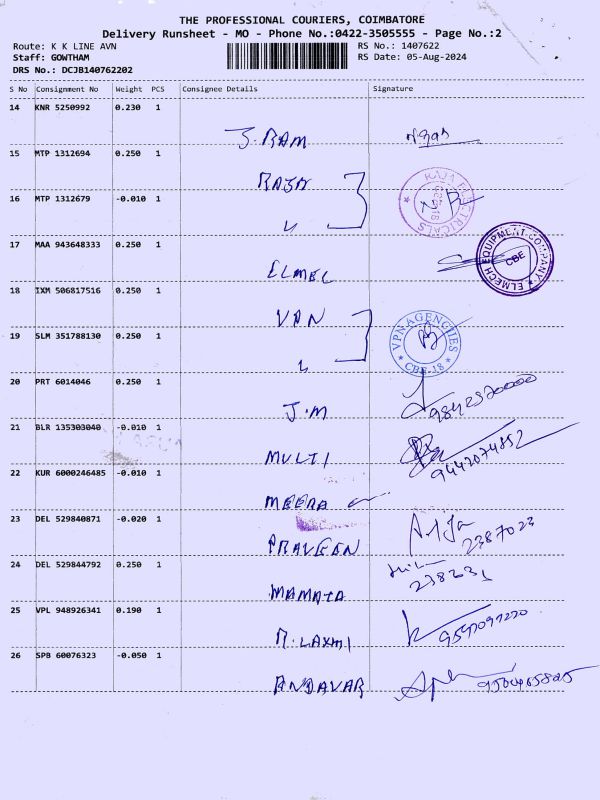 THE PROFESSIONAL COURIERS, COIMBATORE
Delivery Runsheet - MO - Phone No.:0422-3505555 - Page No.:2
Route: K K LINE AVN
RS No.: 1407622
Staff: GOWTHAM
RS Date: 05-Aug-2024
DRS No.: DCJB140762202
S No Consignment No Weight PCS Consignee Details Signature
14 KNR 5250992 0.230 1
J.RAM
15 MTP 1312694 0.250 1
RAJA
RAJA ELECTRICALS
16 MTP 1312679 -0.010 1
17 MAA 943648333 0.250 1
ELMEC
ELMECH EQUIPMENT COMPANY
CBE
18 IXM 506817516 0.250 1
VAN
VPN AGENCIES
CBE-18
19 SLM 351788130 0.250 1
20 PRT 6014046 0.250 1
J.M
21 BLR 135303040 -0.010 1
MULTI
9442074852
22 KUR 6000246485 -0.010 1
MEERA
23 DEL 529840871 -0.020 1
PRAVEEN
2387023
24 DEL 529844792 0.250 1
MAMATA
238231
25 VPL 948926341 0.190 1
M.LAXMI
26 SPB 60076323 -0.050 1
ANDAVAR